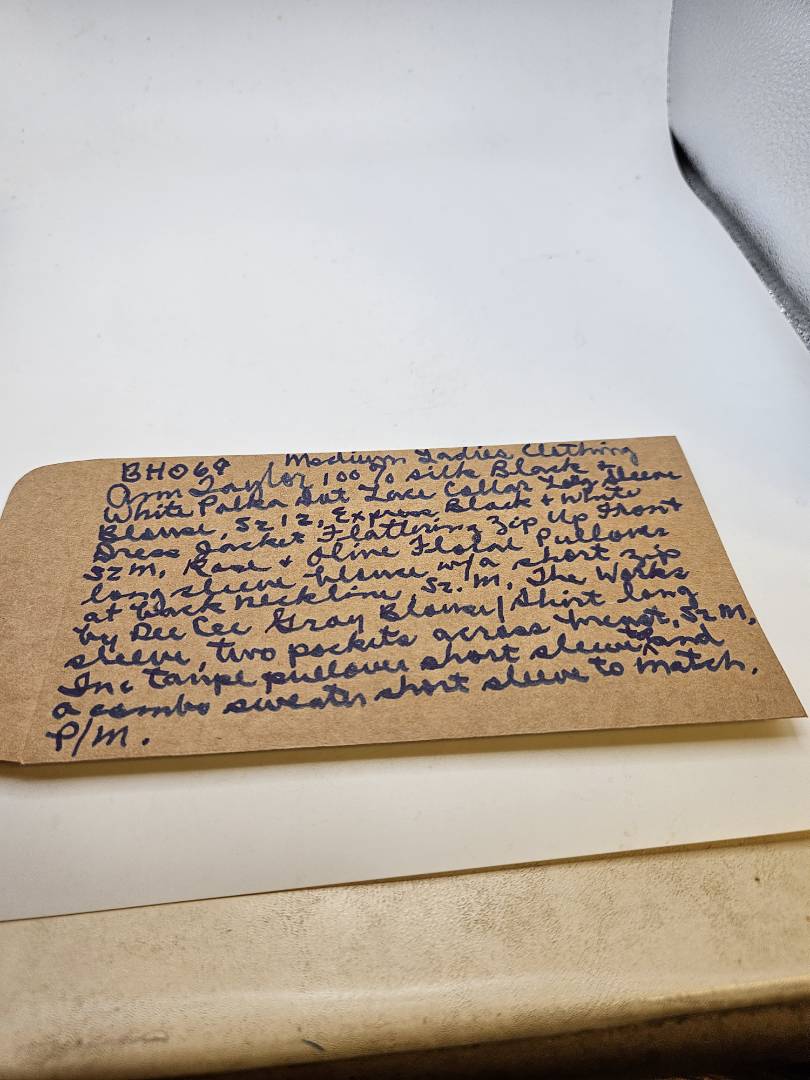 BH064 Medium Ladies Clothing
Ann Taylor 100% silk Black &
White Polka Dot Lace Collar Long Sleeve
Blouse, Sz 12, Express Black & White
Dress Jacket Flattering Zip Up Front
Sz M, Rose & Olive Floral Pullover
long sleeve blouse w/a short zip
at back neckline, Sz. M, The Works
by Dee Cee Gray Blouse/Shirt long
sleeve, two pockets across breast, Sz M,
Inc taupe pullover short sleeve and
a combo sweater short sleeve to match,
P/M.